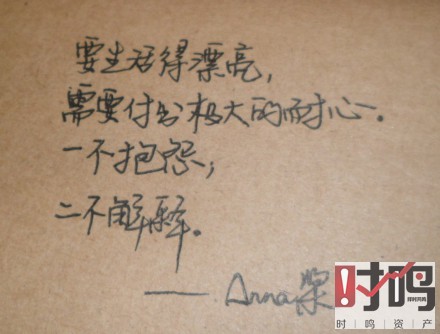 要生活得漂亮，
需要付出极大的耐心。
一不抱怨，
二不解释。
—— Anna
!时鸣
时鸣资产